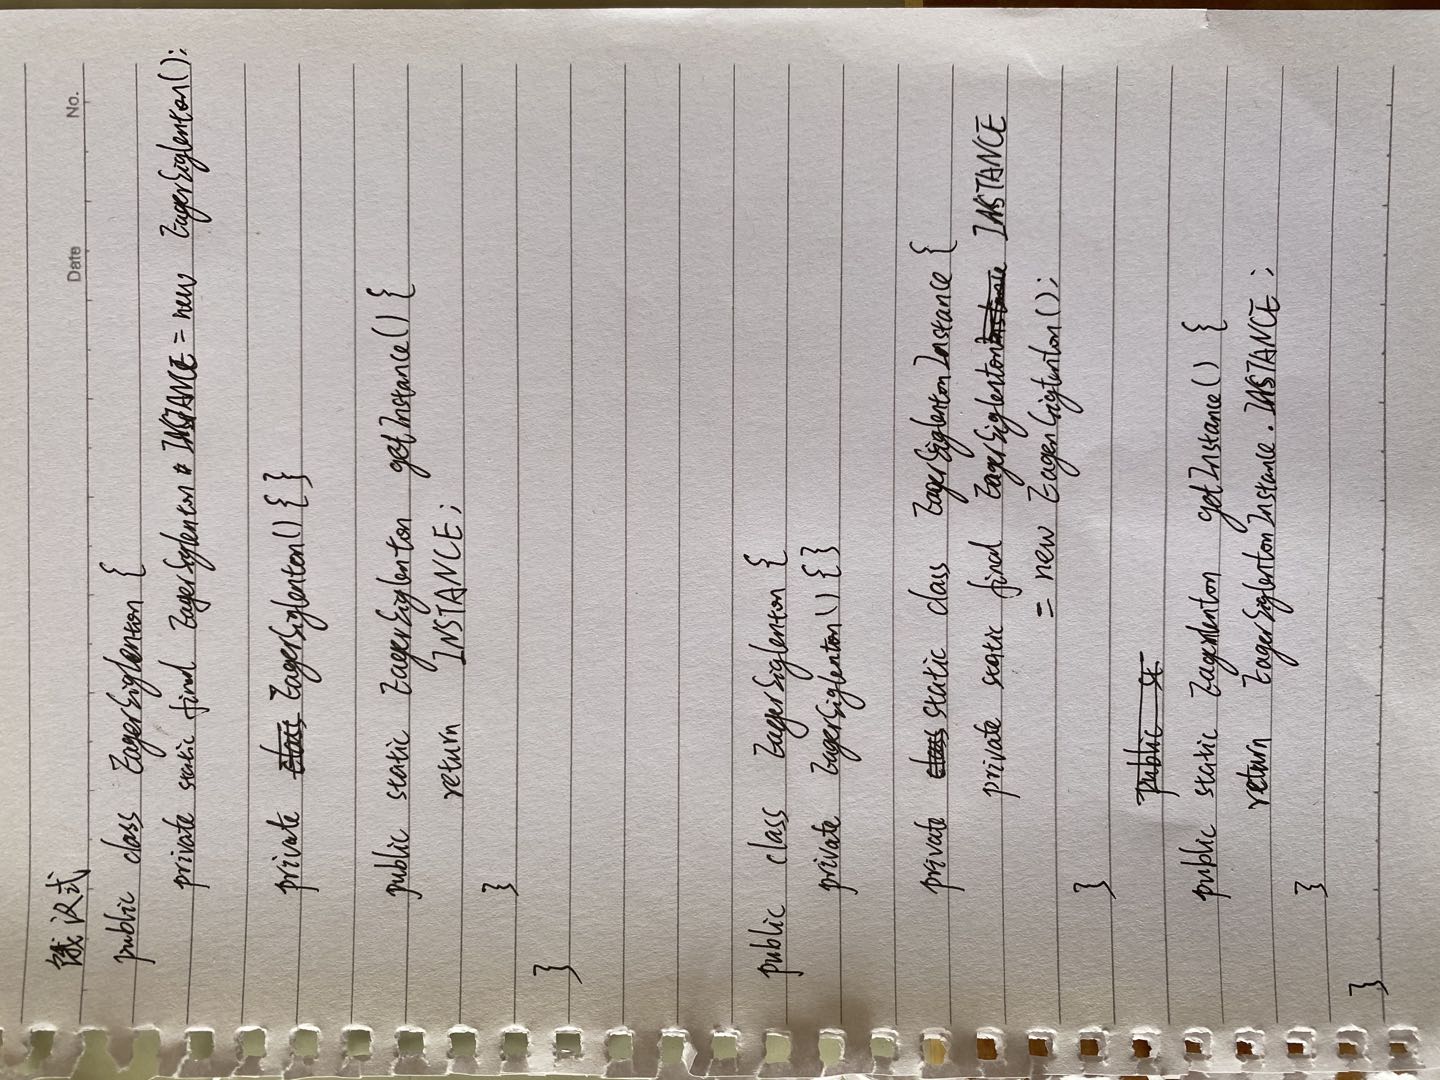 饿汉式
Date No.
public class EagerSiglenton {
private static final EagerSiglenton INSTANCE = new EagerSiglenton();
private class EagerSiglenton() { }
public static EagerSiglenton getInstance() {
return INSTANCE;
}
}
public class EagerSiglenton {
private EagerSiglenton() { }
private class static class EagerSiglentonInstance {
private static final EagerSiglentonInstance INSTANCE
= new EagerSiglenton();
}
public st
public static Eagerlenton getInstance() {
return EagerSiglentonInstance.INSTANCE;
}
}